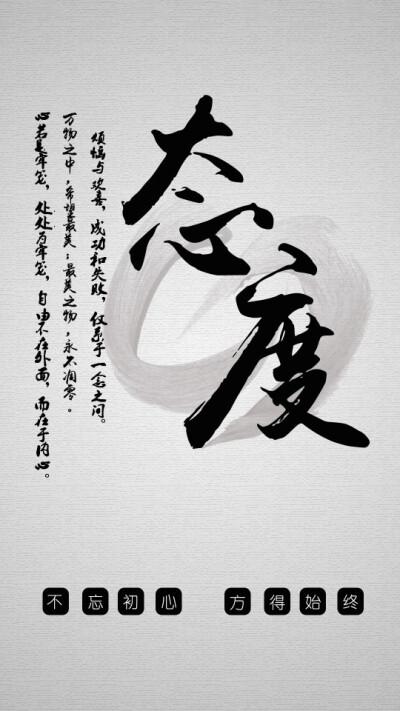 态度
烦恼与欢喜，成功和失败，仅系于一念之间。
万物之中，希望最美；最美之物，永不凋零。
心若是牢笼，处处为牢笼，自由不在外面，而在于内心。
不忘初心 方得始终